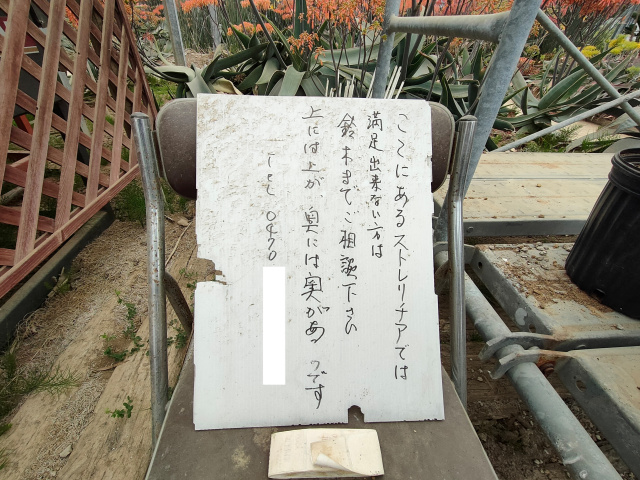 ここにあるストレリチアでは
満足出来ない方は
鈴木までご相談下さい
上には上が、奥には実があるのです
Tel 0470